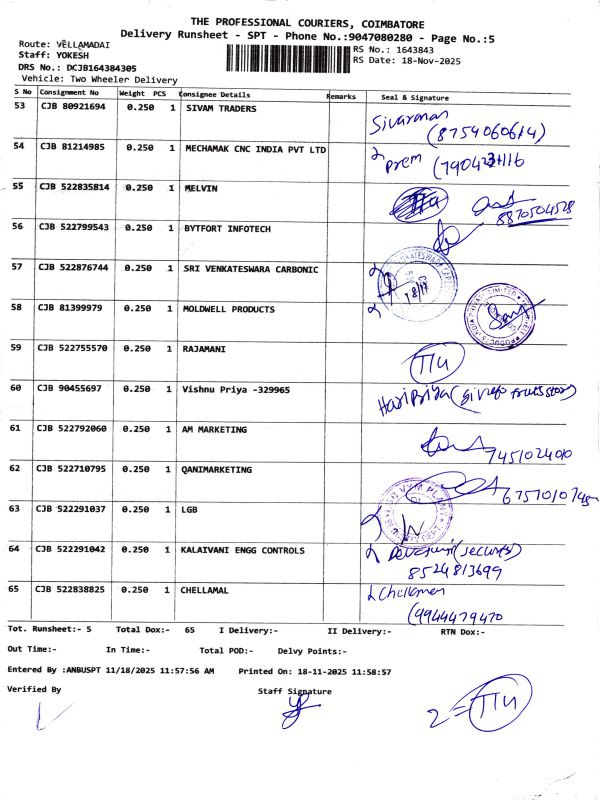 THE PROFESSIONAL COURIERS, COIMBATORE
Delivery Runsheet - SPT - Phone No.:9047080280 - Page No.:5
Route: VELLAMADAI
RS No.: 1643843
Staff: YOKESH
RS Date: 18-Nov-2025
DRS No.: DCJB164384305
Vehicle: Two Wheeler Delivery
S No Consignment No Weight PCS Consignee Details Remarks Seal & Signature
53 CJB 80921694 0.250 1 SIVAM TRADERS
Sivaraman
(8754060614)
54 CJB 81214985 0.250 1 MECHAMAK CNC INDIA PVT LTD
Prem
55 CJB 522835814 0.250 1 MELVIN
8870504528
56 CJB 522799543 0.250 1 BYTFORT INFOTECH
57 CJB 522876744 0.250 1 SRI VENKATESWARA CARBONIC
18/11
58 CJB 81399979 0.250 1 MOLDWELL PRODUCTS
59 CJB 522755570 0.250 1 RAJAMANI
60 CJB 90455697 0.250 1 Vishnu Priya -329965
HariPriya
61 CJB 522792060 0.250 1 AM MARKETING
7451024010
62 CJB 522710795 0.250 1 QANIMARKETING
63 CJB 522291037 0.250 1 LGB
64 CJB 522291042 0.250 1 KALAIVANI ENGG CONTROLS
8524813699
65 CJB 522838825 0.250 1 CHELLAMAL
(9944479470
Tot. Runsheet:- 5 Total Dox:- 65 I Delivery:- II Delivery:- RTN Dox:-
Out Time:- In Time:- Total POD:- Delvy Points:-
Entered By :ANBUSPT 11/18/2025 11:57:56 AM Printed On: 18-11-2025 11:58:57
Verified By Staff Signature